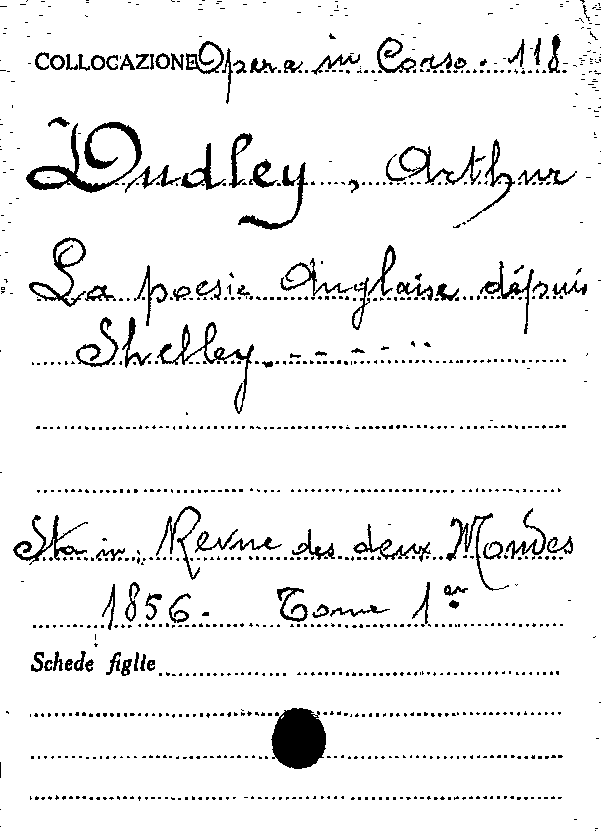 COLLOCAZIONE Opera in Corso. 118
Dudley, Arthur
La poesie Anglaise dépuis
Shelley. - - - - ..
Sta in, Revue des deux Mondes
1856. Tome 1er
Schede figlie